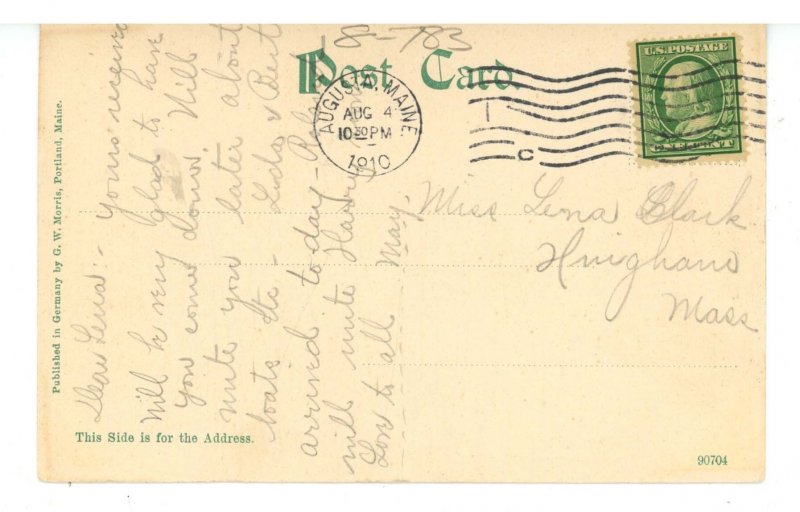 8-783
Post Card.
U.S. POSTAGE
AUGUSTA, MAINE
AUG 4
10 30 PM
1910
C
Miss Lena Clark
Hingham
Mass
Dear Lena:- Yours received
Will be very glad to have
you come down. Will
write you later about
boats etc - & Bert
arrived to-day -
will write Harry
Love to all May.
Published in Germany by G. W. Morris, Portland, Maine.
This Side is for the Address.
90704